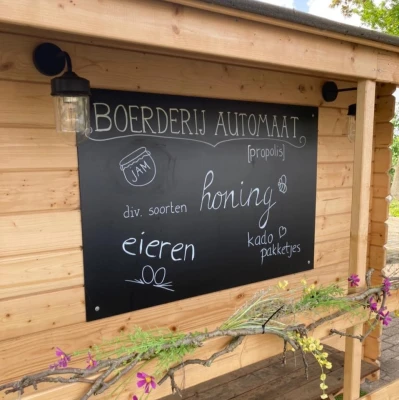 BOERDERIJ AUTOMAAT
[propolis]
JAM
div. soorten honing
eieren
kado
pakketjes